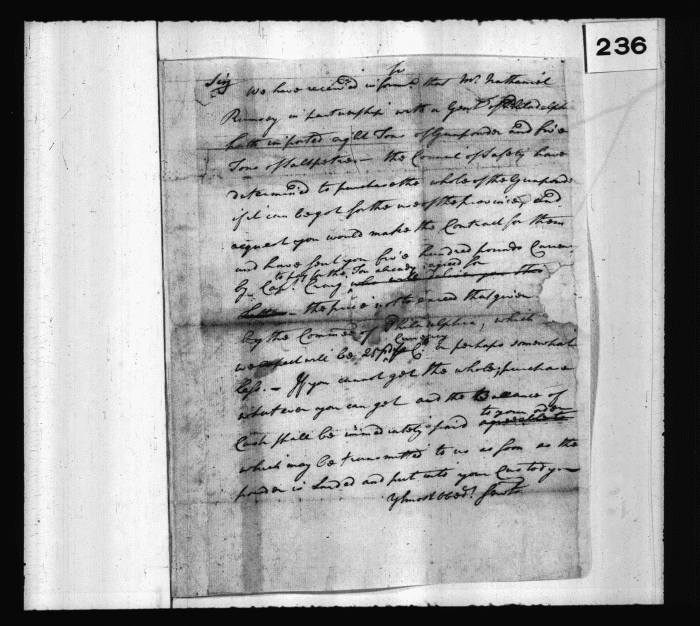 236
Sir We have receiv'd inform.n that Mr. Nathaniel
Ramsay in partnership with a Gent.n of Philadelph
hath imported eight Tons of Gunpowder and five
Tons of Saltpetre — the Council of Safety have
determin'd to purchase the whole of the Gunpowder
if it can be got for the use of the province, and
request you would make the Contract for them
and have sent you five hundred pounds Curren
to pay for the Ton already agreed for
by Capt. Craig
— the price not to exceed that given
by the Committ of Philadelphia, which
Currency
we expect will be 25 p Ct or perhaps somewhat
less. — If you cannot get the whole, purchase
whatever you can get and the Ballance of
to your order
Cash shall be immediately paid agreeable to
which may be transmitted to us as soon as the
powder is Landed and put into your Custody —
Y.r most obed.t Servts